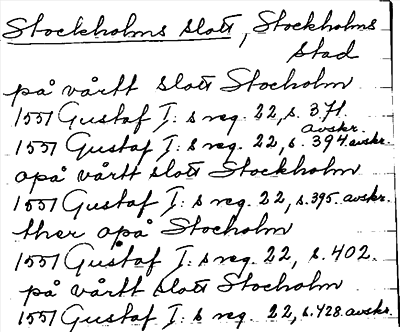 Stockholms slott, Stockholms
stad
på vårtt slott Stocholm
1551 Gustaf I: s reg. 22, s. 371.
avskr.
1551 Gustaf I: s reg. 22, s. 394. avskr.
opå vårtt slott Stockholm
1551 Gustaf I: s reg. 22, s. 395. avskr.
ther opå Stocholm
1551 Gustaf I: s reg. 22, s. 402.
på vårtt slott Stocholm
1551 Gustaf I: s reg. 22, s. 428. avskr.